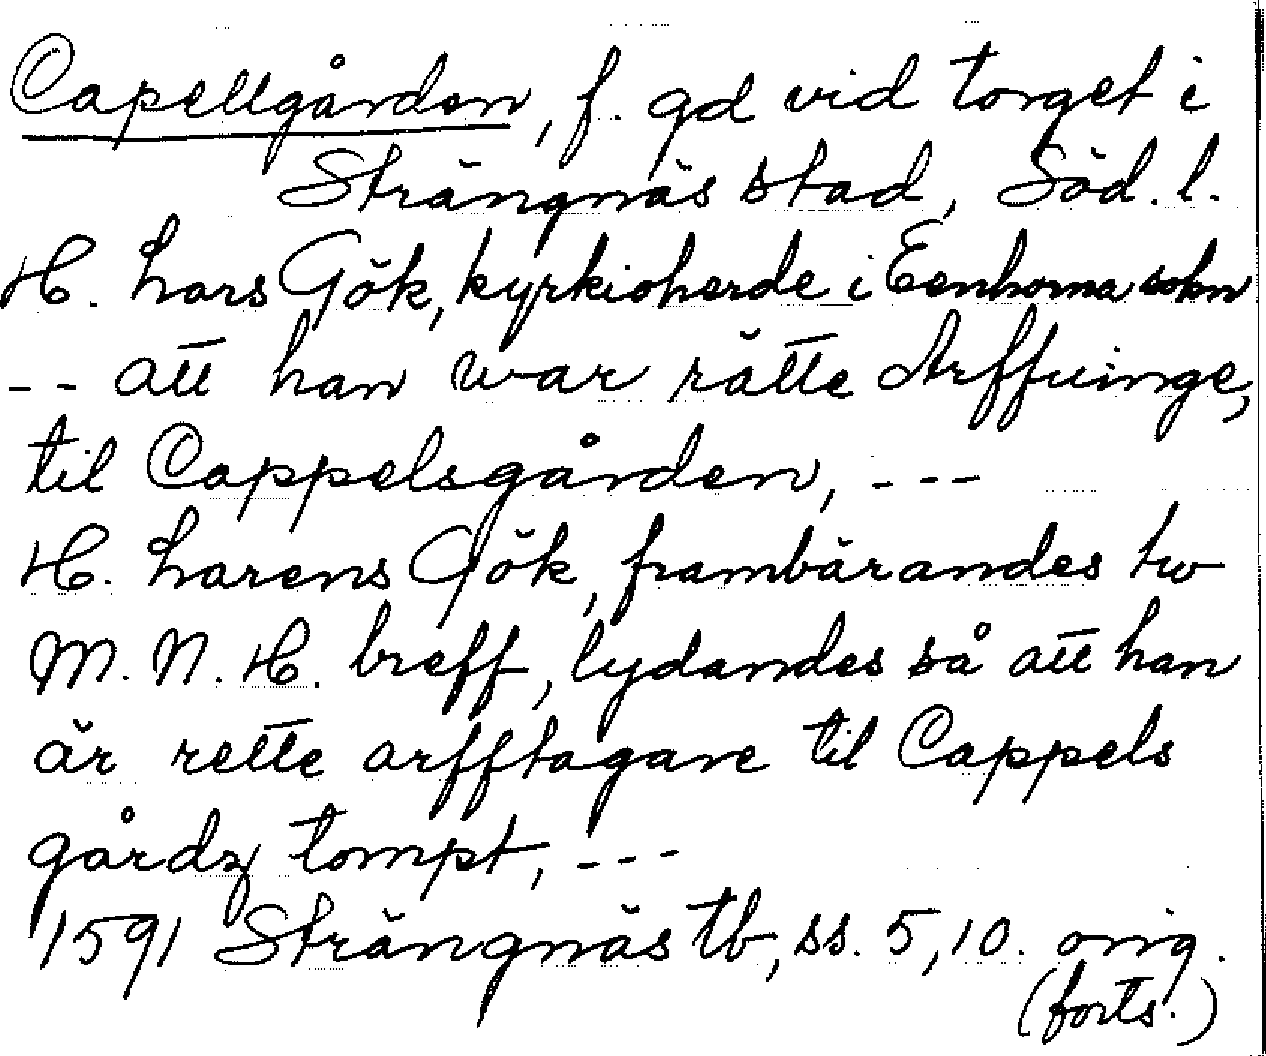 Capellgården, f. gd vid torget i
Strängnäs stad, Söd. l.
H. Lars Gök, kyrkioherde i Eenhorna sokn
-- att han war rätte Arffuinge,
til Cappelsgården, ---
H. Larens Gök, frambärandes tw
M. N. H. breff, lydandes så att han
är rette arfftagare til Cappels
gårdz tompt, ---
1591 Strängnäs tb, ss. 5, 10. orig.
(forts.)